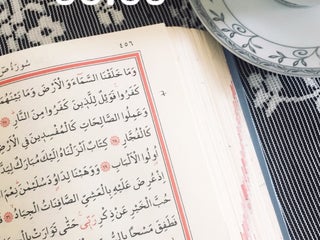 ٤٥٦
سُورَةُ صٓ
وَمَا خَلَقْنَا السَّمَٓاءَ وَالْاَرْضَ وَمَا بَيْنَهُمَا
كَفَرُوا فَوَيْلٌ لِلَّذٖينَ كَفَرُوا مِنَ النَّارِ ﴿٢٧﴾
وَعَمِلُوا الصَّالِحَاتِ كَالْمُفْسِدٖينَ فِي الْاَرْضِ
كَالْفُجَّارِ ﴿٢٨﴾ كِتَابٌ اَنْزَلْنَاهُ اِلَيْكَ مُبَارَكٌ
اُولُوا الْاَلْبَابِ ﴿٢٩﴾ وَوَهَبْنَا لِدَاوُ۫دَ سُلَيْمٰنَ نِعْمَ
اِذْ عُرِضَ عَلَيْهِ بِالْعَشِيِّ الصَّافِنَاتُ الْجِيَادُ ﴿٣١﴾
حُبَّ الْخَيْرِ عَنْ ذِكْرِ رَبّٖي حَتّٰى تَوَارَتْ
فَطَفِقَ مَسْحًا بِالسُّوقِ